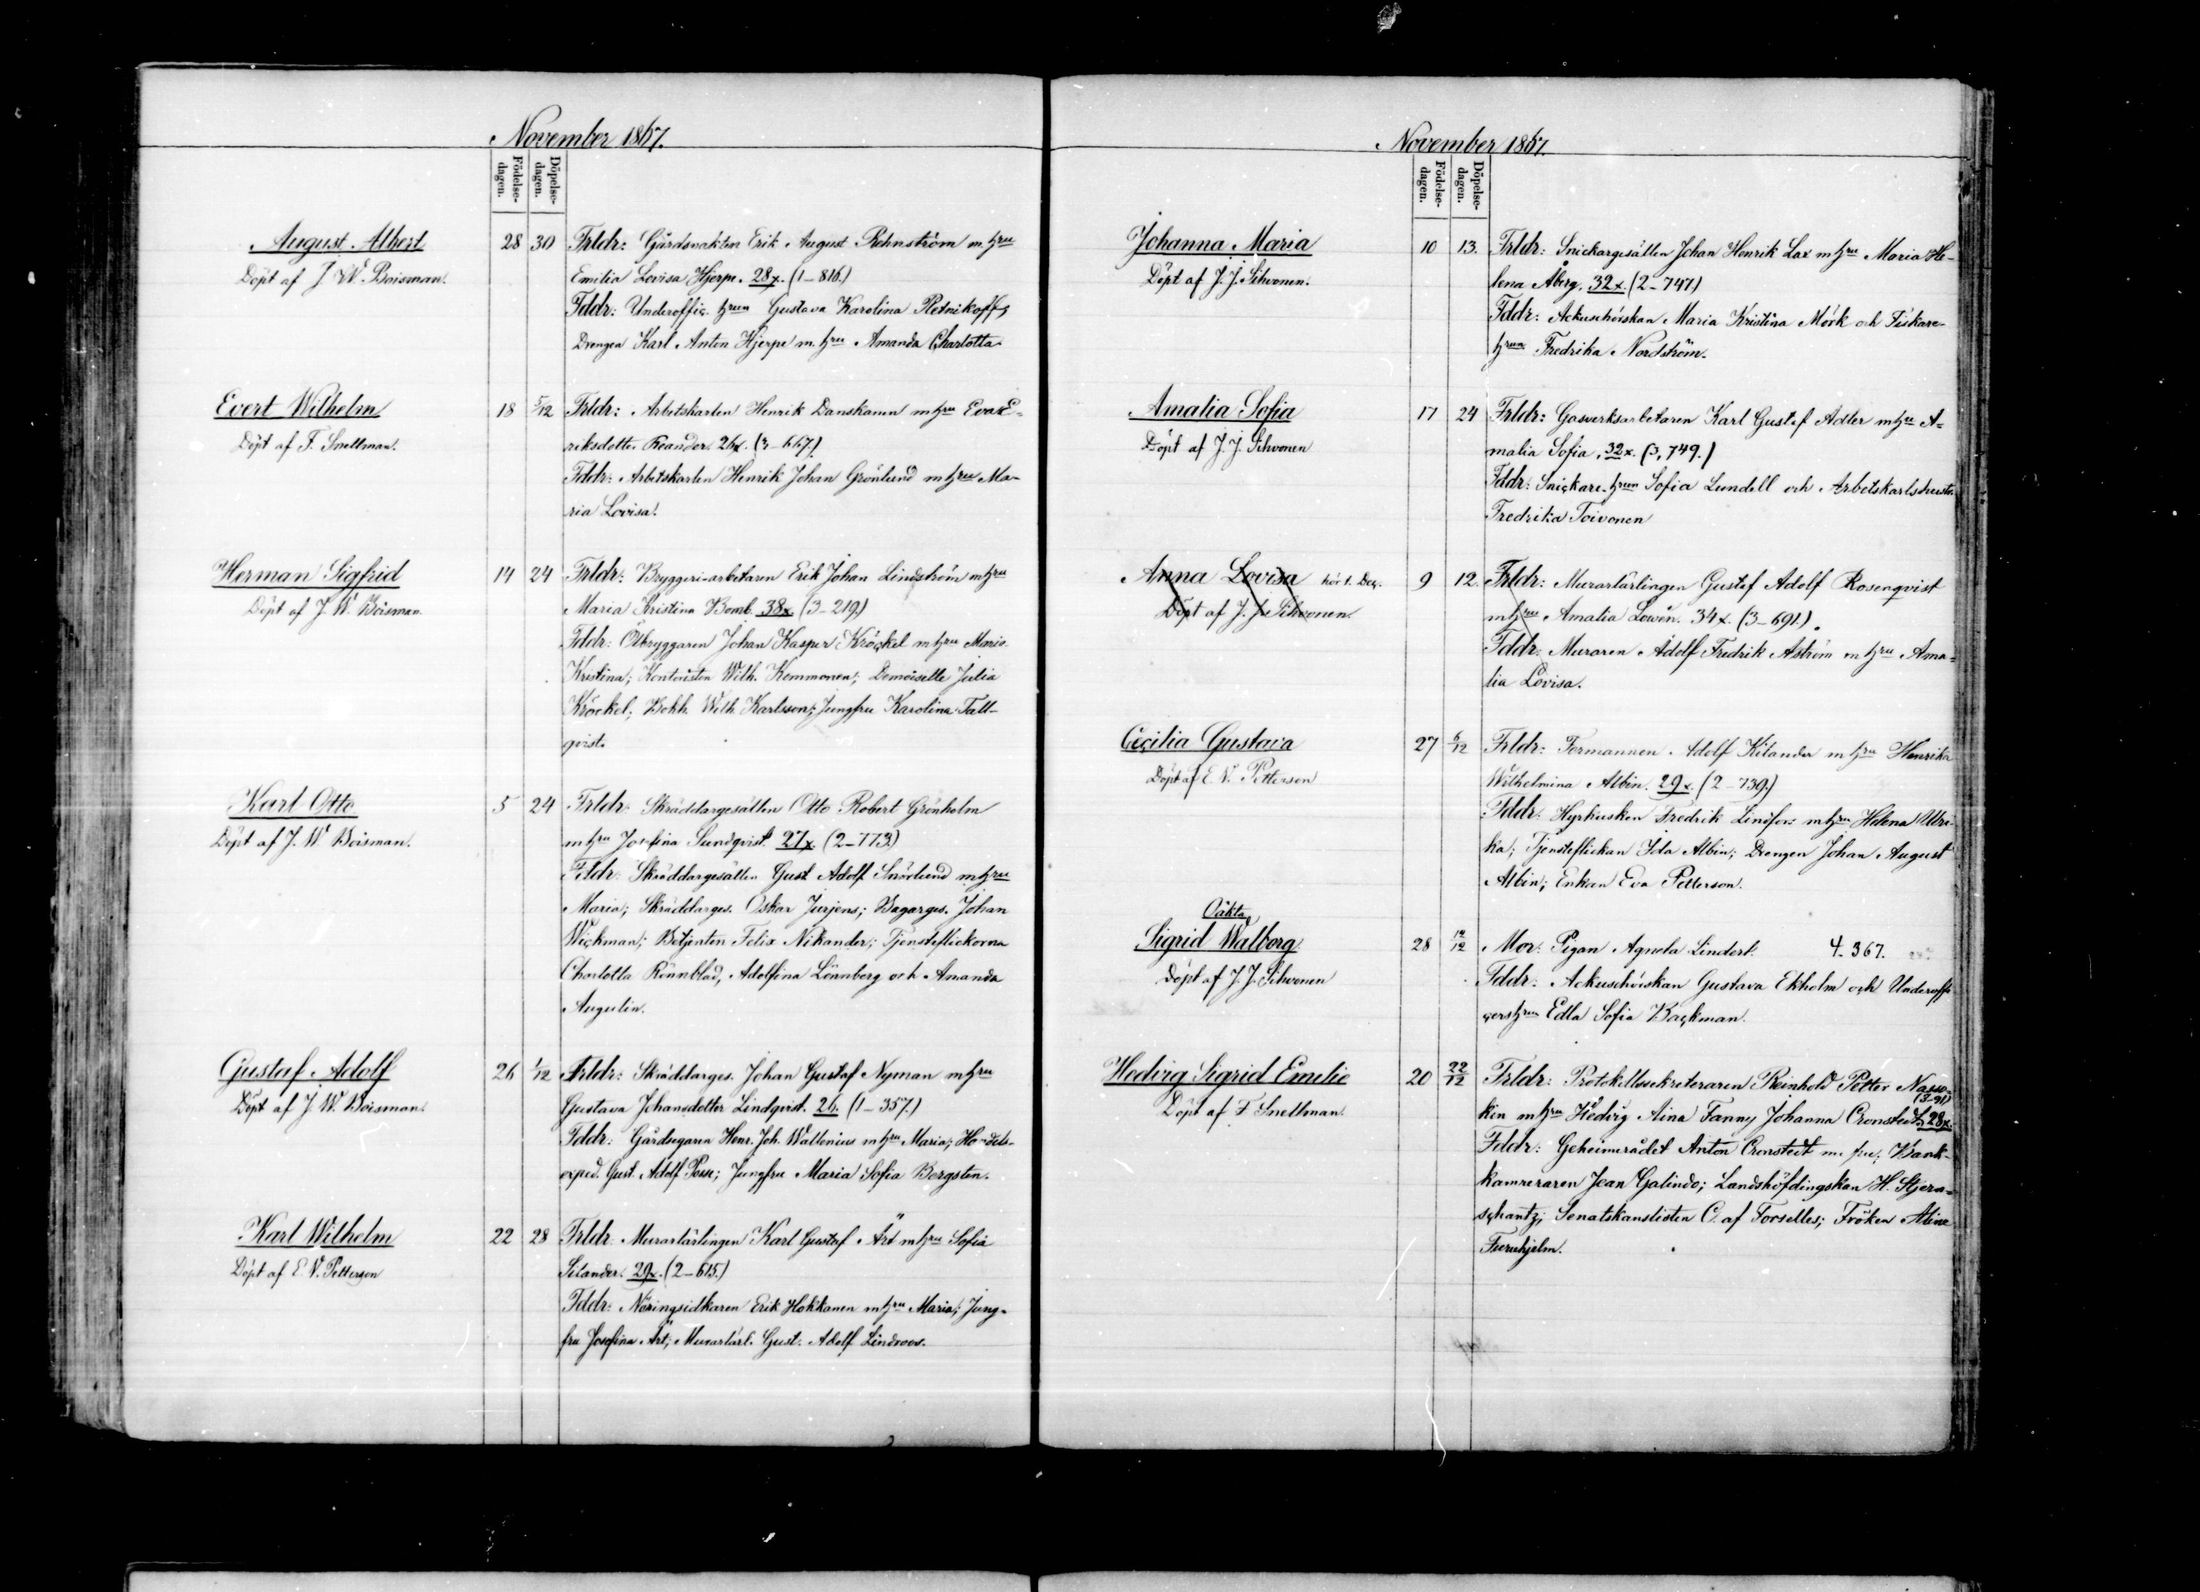 November 1867.
Födelse-
dagen.
Döpelse-
dagen.
August Albert
Döpt af J. W. Boisman.
28 30
Frldr: Gårdsvakten Erik August Rehnström m. hru
Emilia Lovisa Hjerpe. 28x. (1–816.)
Fddr: Underoffic. hrun Gustava Karolina Pletnikoff,
Drengen Karl Anton Hjerpe m. hru Amanda Charlotta.
Evert Wilhelm
Döpt af F. Snellman.
18 5/12
Frldr: Arbetskarlen Henrik Danskanen m hru Eva E-
riksdotter Reander. 26x. (3–667.)
Fddr: Arbetskarlen Henrik Johan Grönlund m hru Ma-
ria Lovisa.
Herman Sigfrid
Döpt af J. W. Boisman.
14 24
Frldr: Bryggeri-arbetaren Erik Johan Lindström m hru
Maria Kristina Bomb. 38x (3–219.)
Fddr: Ölbryggaren Johan Kasper Kröckel m hru Maria
Kristina; Kontoristen Wilh. Kommonen; Demoiselle Julia
Kröckel; Bokh. Wilh. Karlsson; Jungfru Karolina Tall-
qvist.
Karl Otto
Döpt af J. W. Boisman.
5 24
Frldr: Skräddargesällen Otto Robert Grönholm
m hru Josefina Sundqvist. 27x. (2–773.)
Fddr: Skräddargesällen Gust. Adolf Snödlund m hru
Maria; Skräddarges. Oskar Jurjens; Bagarges. Johan
Wickman; Betjenten Felix Nikander; Tjensteflickorna
Charlotta Rönnblad, Adolfina Lönnberg och Amanda
Augulin.
Gustaf Adolf
Döpt af J. W. Boisman.
26 1/12
Frldr: Skräddarges. Johan Gustaf Nyman m hru
Gustava Johansdotter Lindqvist. 26. (1–357.)
Fddr: Gårdsegaren Henr. Joh. Wallenius m hru Maria; Handels-
exped. Gust. Adolf Posse; Jungfru Maria Sofia Bergsten.
Karl Wilhelm
Döpt af E. V. Petterson
22 28
Frldr: Murarlärlingen Karl Gustaf Ärt m hru Sofia
Silander. 29x. (2–615.)
Fddr: Näringsidkaren Erik Hokkanen m hru Maria; Jung-
fru Josefina Ärt; Murarlärl. Gust. Adolf Lindroos.
November 1867.
Födelse-
dagen.
Döpelse-
dagen.
Johanna Maria
Döpt af J. J. Sihvonen.
10 13.
Frldr: Snickargesällen Johan Henrik Lax m hru Maria He-
lena Åberg. 32x. (2–747)
Fddr: Ackuschörskan Maria Kristina Mörk och Fiskare-
hrun Fredrika Nordström.
Amalia Sofia
Döpt af J. J. Sihvonen
17 24
Frldr: Gasverksarbetaren Karl Gustaf Adler m hru A-
malia Sofia, 32x. (3, 749.)
Fddr: Snickare-hrun Sofia Lundell och Arbetskarlshustr.
Fredrika Toivonen
Anna Lovisa hör t. Dec.
Döpt af J. J. Sihvonen.
9 12.
Frldr: Murarlärlingen Gustaf Adolf Rosenqvist
m hru Amalia Lowén. 34x. (3–691.)
Fddr: Muraren Adolf Fredrik Åström m hru Ama-
lia Lovisa.
Cecilia Gustava
Döpt af E. V. Petterson
27 6/12
Frldr: Formannen Adolf Kilander m hru Henrika
Wilhelmina Albin. 29x. (2–739.)
Fddr: Hyrkusken Fredrik Lindfors m hru Helena Ulri-
ka; Tjensteflickan Ida Albin; Drengen Johan August
Albin; Enkan Eva Petterson.
Oäkta
Sigrid Walborg
Döpt af J. J. Sihvonen
28 12/12
Mor: Pigan Agneta Linderl. 4–367.
Fddr: Ackuschörskan Gustava Ekholm och Underoffi
cershrun Edla Sofia Backman.
Hedvig Sigrid Emelie
Döpt af F. Snellman.
20 22/12
Frldr: Protokollssekreteraren Reinhold Petter Nasso-
(3–91)
kin m hru Hedvig Aina Fanny Johanna Cronstedt 28x.
Fddr: Geheimerådet Anton Cronstedt m. fru; Bank-
kamreraren Jean Galindo; Landshöfdingskan H. Stjern-
schantz; Senatskanslisten C. af Forselles; Fröken Aline
Furuhjelm.